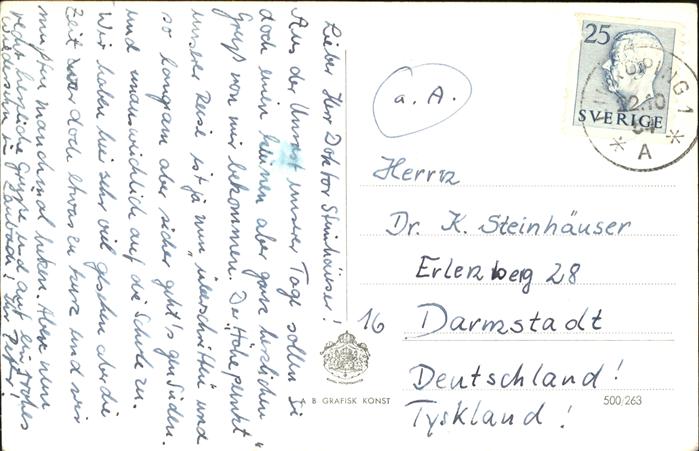 Lieber Herr Doktor Steinhäuser!
Aus der Unrast unserer Tage sollen Sie
doch einen kleinen aber ganz herzlichen
Gruß von mir bekommen. Der "Höhepunkt"
unserer Reise ist ja nun "überschritten" und
so langsam aber sicher geht's gen Süden.
und unausweichlich auf die Schule zu.
Wir haben hier sehr viel gesehen aber die
Zeit war doch etwas zu kurz und wir
mußten manchmal hetzen. Aber nun
recht herzliche Grüße und auf ein frohes
Wiedersehn in Laubach! Ihr Peter!
a. A.
25
SVERIGE
KÖPING 1
12.10
54
* A *
Herrn
Dr. K. Steinhäuser
Erlenberg 28
16 Darmstadt
Deutschland!
Tyskland!
A B GRAFISK KONST
500/263